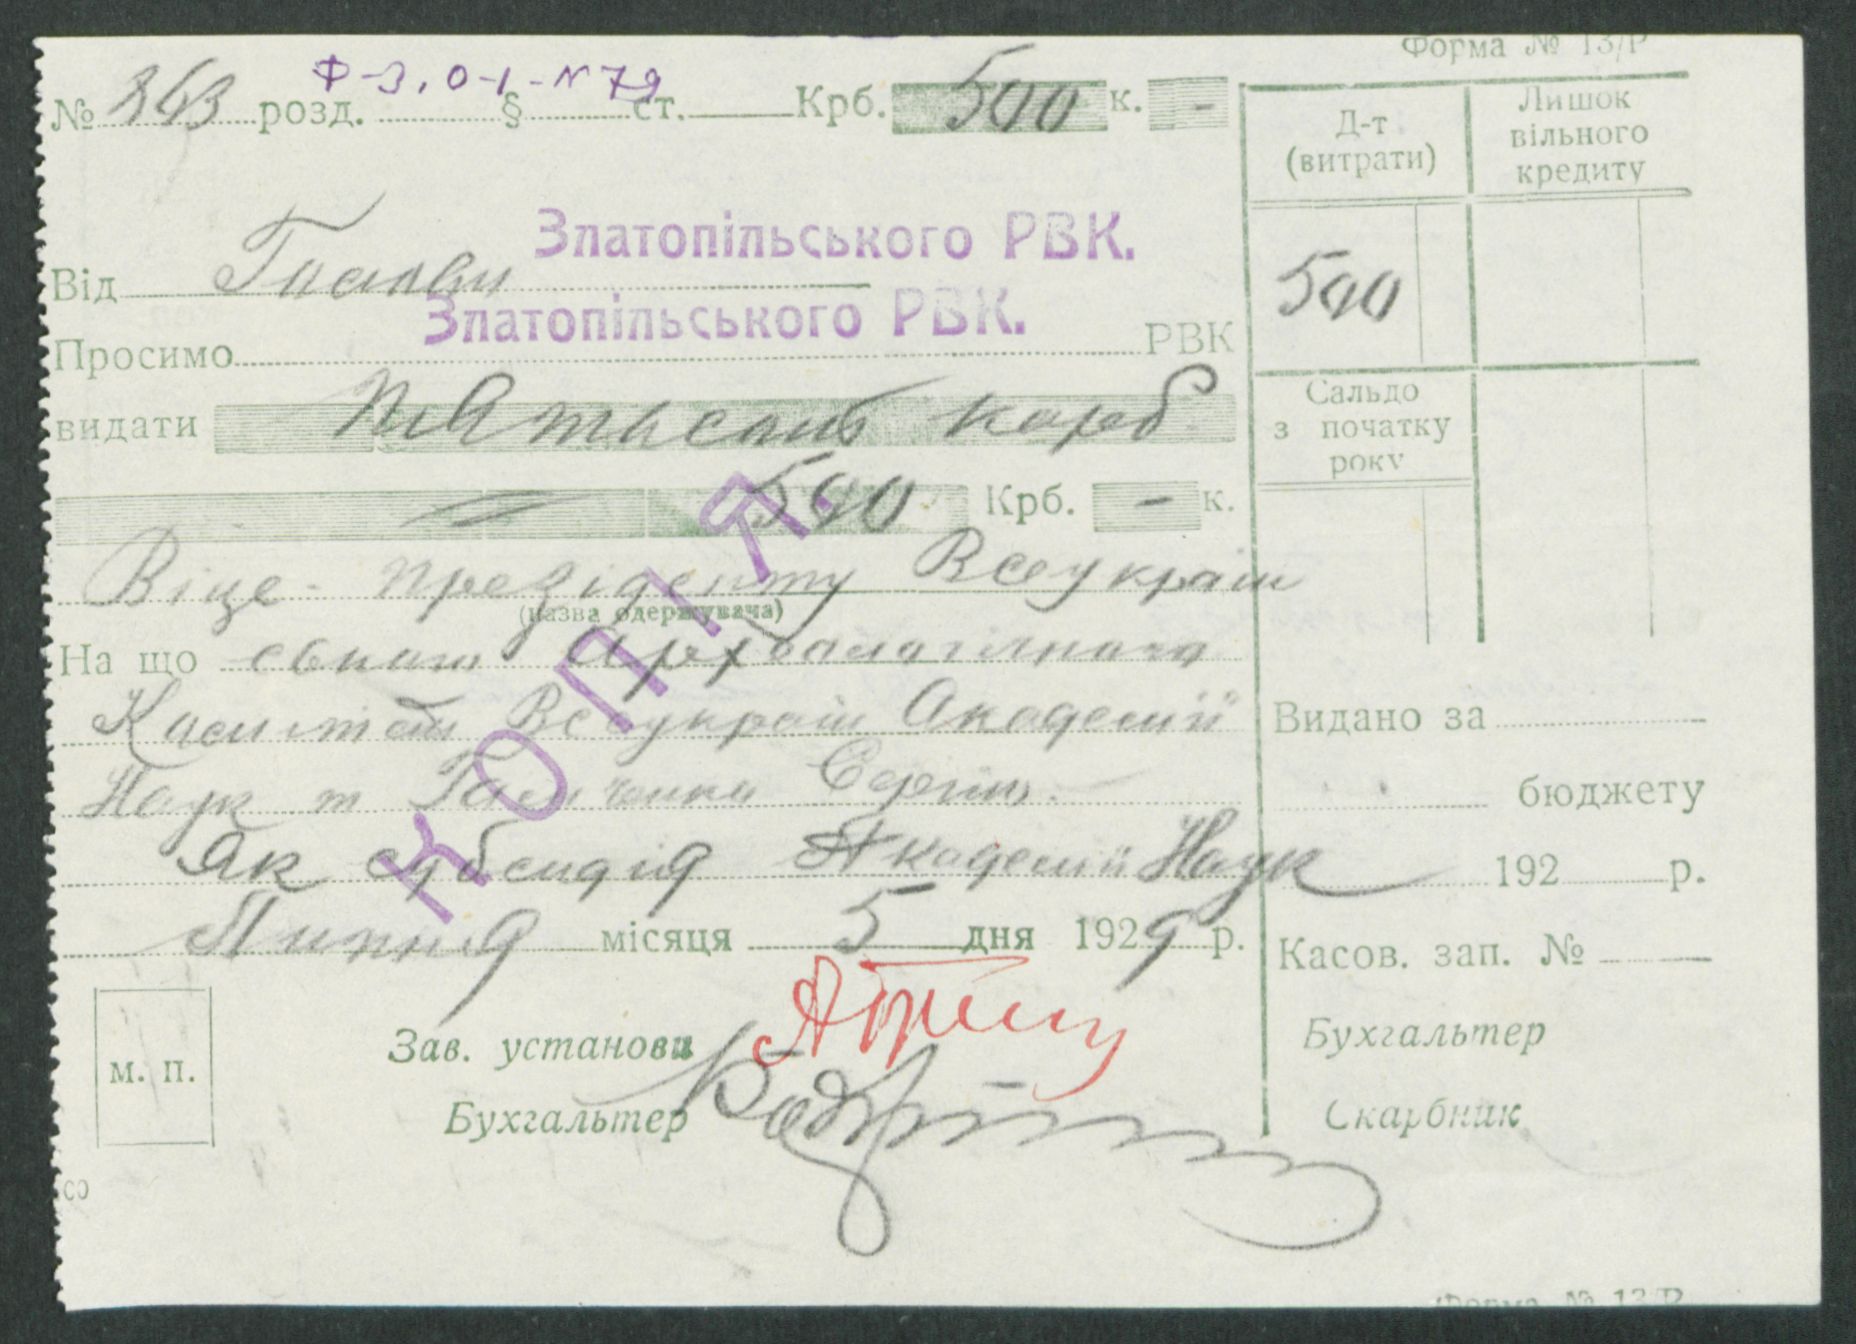 Форма № 13/Р
Ф-3, О-1-N 79
№ 263 розд. § ст. Крб. 500 к. -
Д-т (витрати)
Лишок вільного кредиту
Златопільського РВК.
Від Голови
500
Златопільського РВК.
Просимо РВК
видати П'ятьсот карб.
Сальдо з початку року
500 Крб. - к.
Віце-президенту Всеукраїн
(назва одержувача)
На що ського Археологічного
Комітету Всеукраїн Академії
Наук т Сергію.
Як субсидія Академії Наук
Липня місяця 5 дня 1929 р.
КОПІЯ.
Видано за
бюджету
192 р.
Касов. зап. №
м. п.
Зав. установи
Бухгальтер
Бухгальтер
Скарбник
Форма № 13/Р